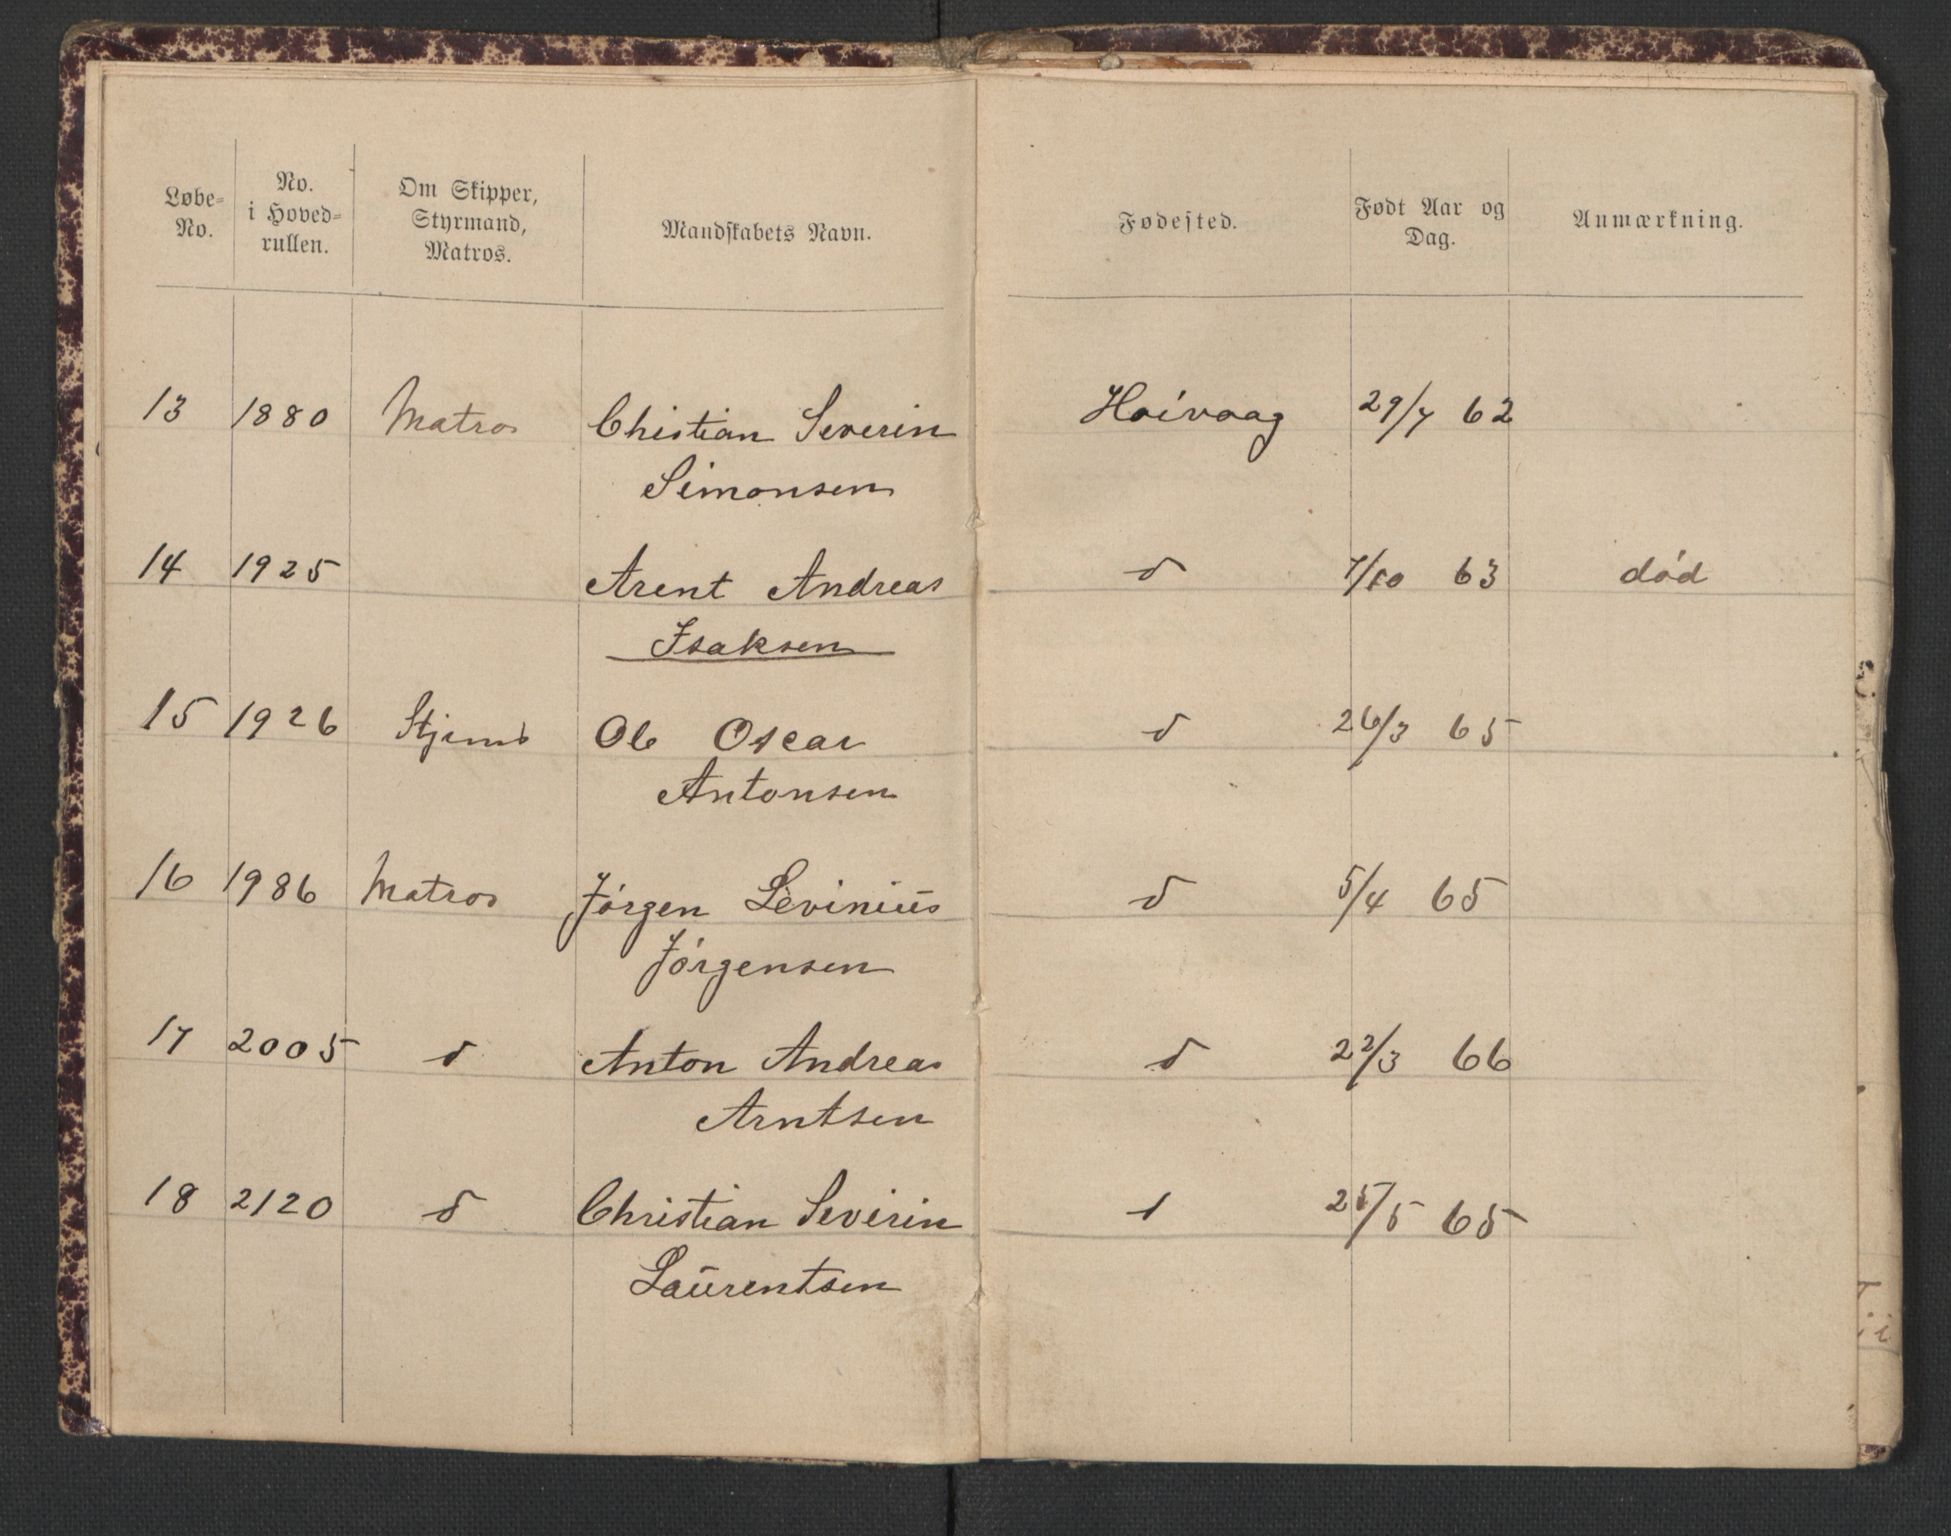 Løbe-No. | No. i Hoved-rullen. | Om Skipper, Styrmand, Matros. | Mandskabets Navn. | Fødested. | Født Aar og Dag. | Anmærkning.
13 1880 Matros Christian Severin Høivaag 29/7 62
Simonsen
14 1925 Arent Andreas d 7/10 63 død
Isaksen
15 1926 Stjrmd Ole Oscar d 26/3 65
Antonsen
16 1986 Matros Jørgen Levinius d 5/4 65
Jørgensen
17 2005 d Anton Andreas d 22/3 66
Arntsen
18 2120 d Christian Severin d 25/5 65
Laurentsen